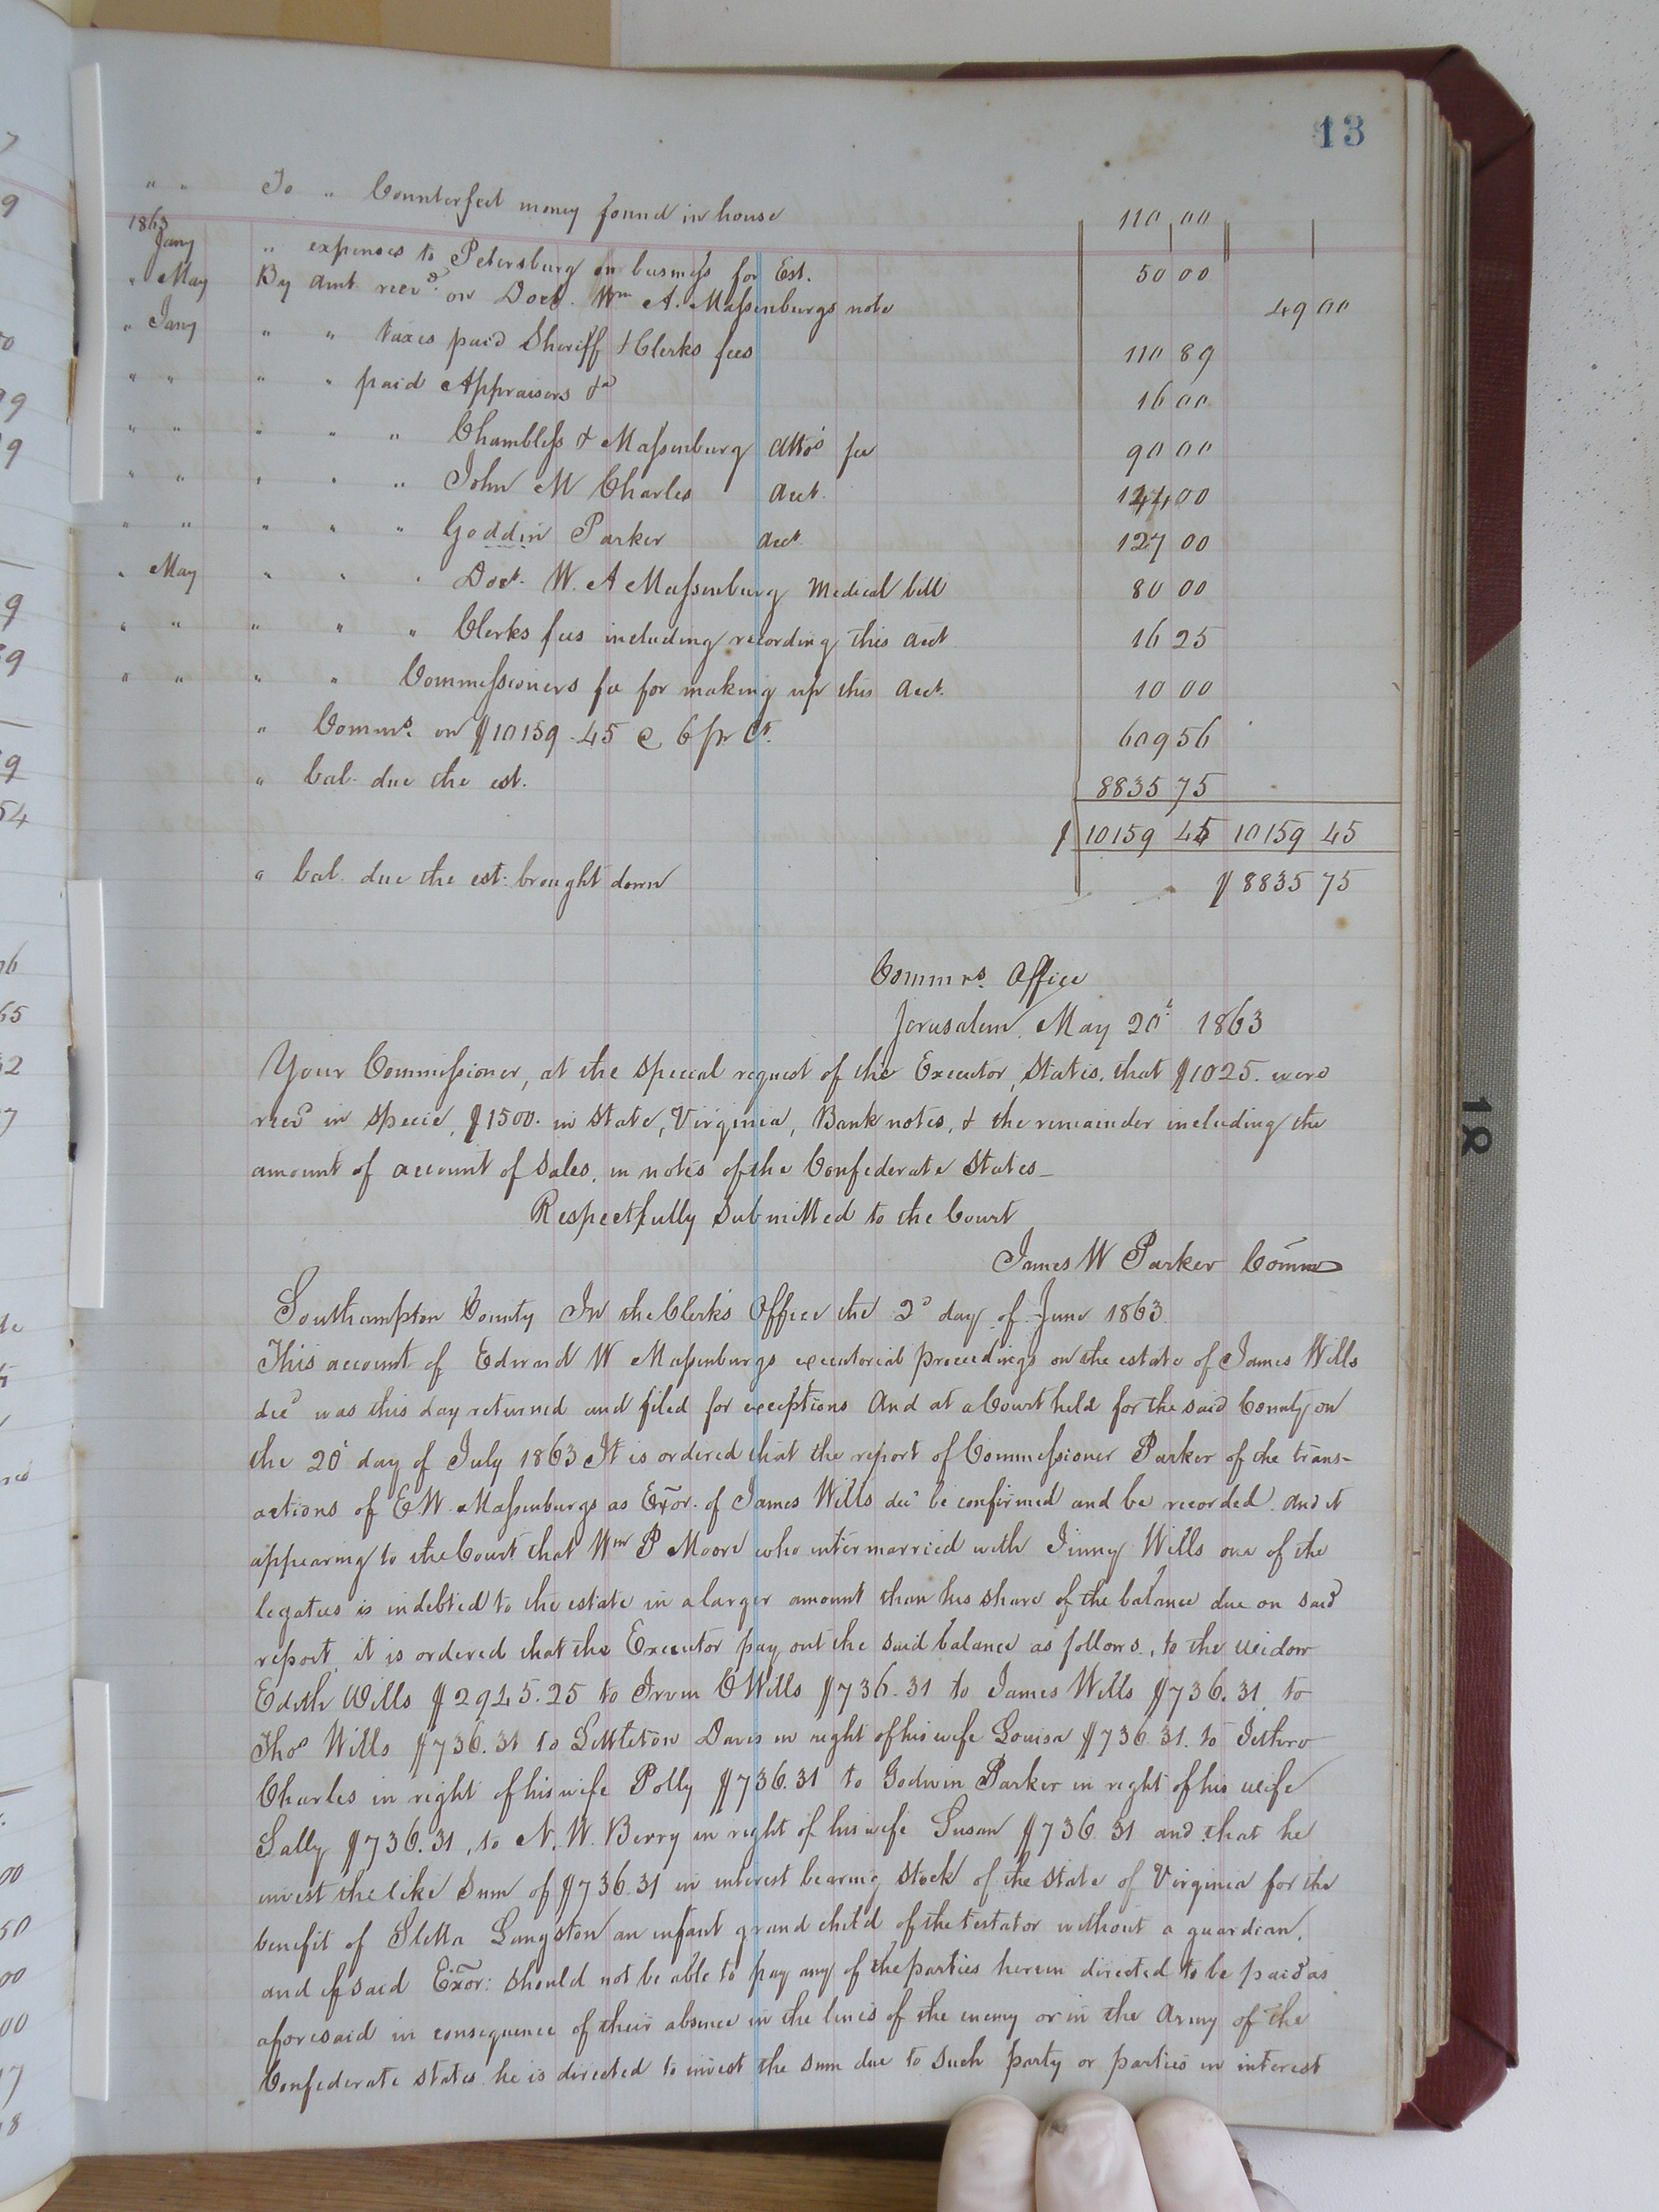 13
" " To " Counterfeit money found in house 110 00
1863
Jany " expenses to Petersburg on business for Est. 50 00
" May By amt. recd. on Doct. Wm A. Massenburgs note 49 00
" Jany " " taxes paid Sheriff & Clerks fees 110 89
" " " " paid Appraisers &c 16 00
" " " " " Chambless & Massenburg Attos fee 90 00
" " " " " John M Charles Acct. 144 00
" " " " " Goddin Parker acct 127 00
" May " " " Doct. W. A Massenburg Medical bill 80 00
" " " " " Clerks fees including recording this acct 16 25
" " " " Commissioners fee for making up this Acct. 10 00
" Comms. on $10159.45 @ 6 pr Ct. 609 56
" bal. due the est. 8835 75
$ 10159 45 10159 45
" bal. due the est: brought down $8835 75
Commrs. Office
Jerusalem. May 20t 1863
Your Commissioner, at the special request of the Executor, states, that $1025. were
recd in specie, $1500. in State, Virginia, Bank notes, & the remainder including the
amount of account of Sales, in notes of the Confederate States—
Respectfully submitted to the Court
James W Parker Comm
Southampton County In the Clerk's Office the 2d day of June 1863.
This account of Edward W Massenburgs executorial proceedings on the estate of James Wills
decd was this day returned and filed for exceptions And at a Court held for the said County on
the 20t day of July 1863 It is ordered that the report of Commissioner Parker of the trans-
actions of E. W. Massenburgs as Exor. of James Wills decd be confirmed and be recorded. And it
appearing to the Court that Wm P Moore who intermarried with Jinny Wills one of the
legatees is indebted to the estate in a larger amount than his share of the balance due on said
report, it is ordered that the Executor pay out the said balance as follows., to the widow
Edith Wills $2945.25 to Irvin O Wills $736.31 to James Wills $736.31. to
Thos Wills $736.31 to Littleton Davis in right of his wife Louisa $736.31. to Jethro
Charles in right of his wife Polly $736.31 to Godwin Parker in right of his wife
Sally $736.31, to N. W. Berry in right of his wife Susan $736.31 and that he
invest the like Sum of $736.31 in interest bearing stock of the State of Virginia for the
benefit of Langston an infant grand child of the testator without a guardian,
and if said Exor: should not be able to pay any of the parties herein directed to be paid as
aforesaid in consequence of their absence in the lines of the enemy or in the Army of the
Confederate states he is directed to invest the sum due to such party or parties in interest
18